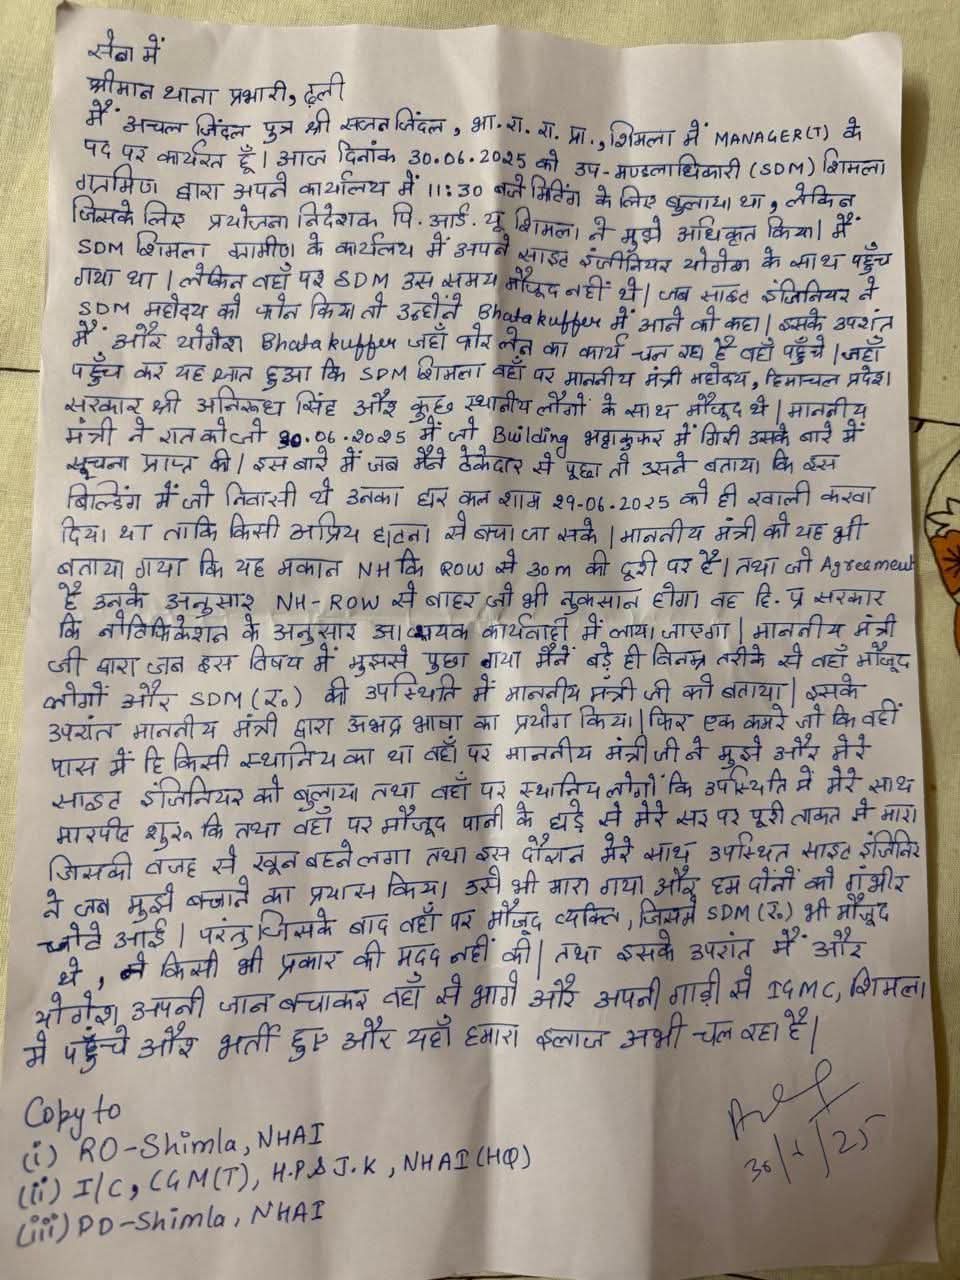 सेवा में
श्रीमान थाना प्रभारी, ढली
मैं अचल जिंदल पुत्र श्री सजन जिंदल, भा. रा. रा. प्रा., शिमला में MANAGER(T) के
पद पर कार्यरत हूँ। आज दिनांक 30.06.2025 को उप-मण्डलाधिकारी (SDM) शिमला
ग्रामिण द्वारा अपने कार्यालय में 11:30 बजे मिटिंग के लिए बुलाया था, लेकिन
जिसके लिए प्रयोजना निदेशक पि. आई. यू शिमला ने मुझे अधिकृत किया। मैं
SDM शिमला ग्रामीण के कार्यलय में अपने साइट इंजीनियर योगेश के साथ पहुँच
गया था। लेकिन वहाँ पर SDM उस समय मौजूद नहीं थे। जब साइट इंजिनियर ने
SDM महोदय को फोन किया तो उन्होंने Bhatakuffer में आने को कहा। इसके उपरांत
मैं और योगेश Bhatakuffer जहाँ फोर लेन का कार्य चल रहा है वहाँ पहुँचे। जहाँ
पहुँच कर यह ज्ञात हुआ कि SDM शिमला वहाँ पर माननीय मंत्री महोदय, हिमाचल प्रदेश
सरकार श्री अनिरूध सिंह और कुछ स्थानीय लोगों के साथ मौजूद थे। माननीय
मंत्री ने रात को जो 30.06.2025 में जो Building भट्टाकुफर में गिरी उसके बारे में
सूचना प्राप्त की। इस बारे में जब मैंने ठेकेदार से पूछा तो उसने बताया कि इस
बिल्डिंग में जो निवासी थे उनका घर कल शाम 29-06.2025 को ही खाली करवा
दिया था ताकि किसी अप्रिय घटना से बचा जा सके। माननीय मंत्री को यह भी
बताया गया कि यह मकान NH कि ROW से 30m की दूरी पर है। तथा जो Agreement
है उनके अनुसार NH-ROW से बाहर जो भी नुकसान होगा वह हि. प्र सरकार
कि नोटिफिकेशन के अनुसार आवश्यक कार्यवाही में लाया जाएगा। माननीय मंत्री
जी द्वारा जब इस विषय में मुझसे पुछा गया मैंनें बड़े ही विनम्र तरीके से वहाँ मौजूद
लोगों और SDM(र.) की उपस्थिति में माननीय मंत्री जी को बताया। इसके
उपरांत माननीय मंत्री द्वारा अभद्र भाषा का प्रयोग किया। फिर एक कमरे जो कि वहीं
पास में हि किसी स्थानिय का था वहाँ पर माननीय मंत्री जी ने मुझे और मेरे
साइट इंजिनियर को बुलाया तथा वहाँ पर स्थानिय लोगों कि उपस्थिति में मेरे साथ
मारपीट शुरू कि तथा वहाँ पर मौजूद पानी के घड़े से मेरे सर पर पूरी ताकत से मारा
जिसकी वजह से खून बहने लगा तथा इस दौरान मेरे साथ उपस्थित साइट इंजिनिर
ने जब मुझे बचाने का प्रयास किया उसे भी मारा गया और हम दोनों को गंभीर
चोटे आई। परंतु जिसके बाद वहाँ पर मौजूद व्यक्ति, जिसमे SDM(र.) भी मौजूद
थे, ने किसी भी प्रकार की मदद नहीं की। तथा इसके उपरांत मैं और
योगेश अपनी जान बचाकर वहाँ से भागे और अपनी गाड़ी से IGMC, शिमला
मे पहुँचे और भर्ती हुए और यहाँ हमारा इलाज अभी चल रहा है।
Copy to
(i) RO-Shimla, NHAI
(ii) I/C, CGM(T), H.P & J.K, NHAI (HQ)
(iii) PD-Shimla, NHAI